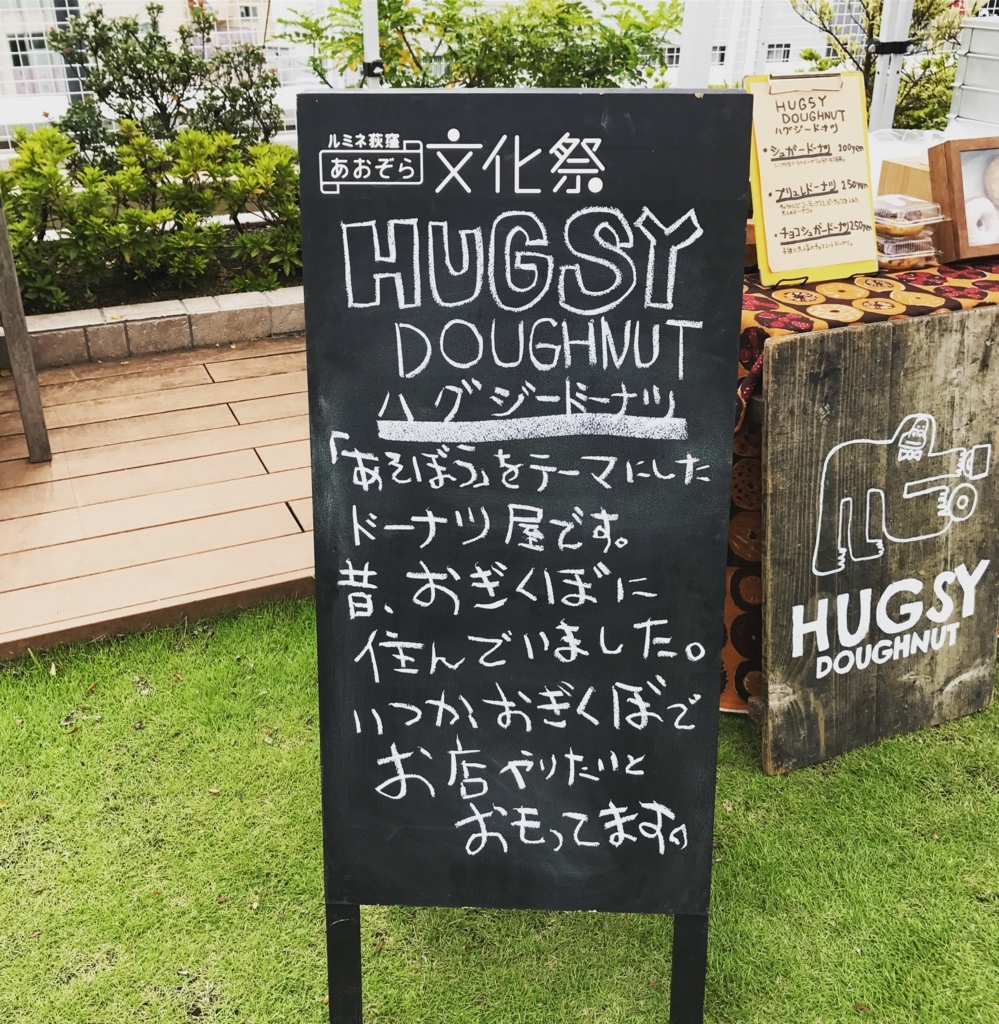 ルミネ荻窪
あおぞら
文化祭
HUGSY
DOUGHNUT
ハグジードーナツ
「あそぼう」をテーマにした
ドーナツ屋です。
昔、おぎくぼに
住んでいました。
いつかおぎくぼで
お店やりたいと
おもってます。
HUGSY
DOUGHNUT
ハグジードーナツ
・シュガードーナツ 200yen
・ブリュレドーナツ 250yen
・チョコシュガードーナツ 250yen
HUGSY
DOUGHNUT